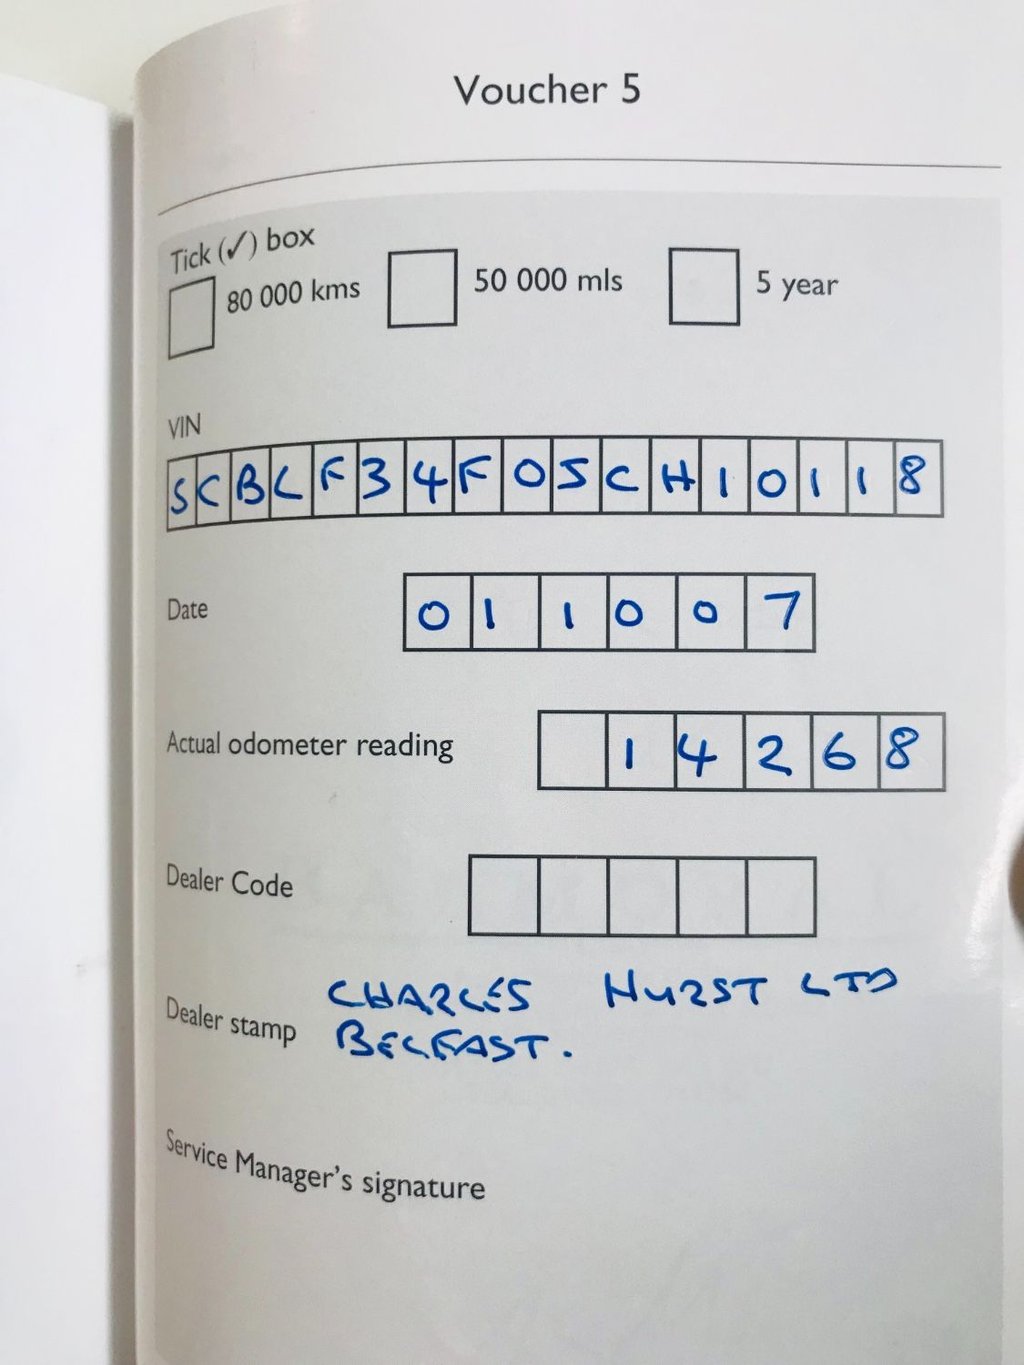 Voucher 5
Tick (✓) box
80 000 kms 50 000 mls 5 year
VIN
SCBLF34F05CH10118
Date 011007
Actual odometer reading 14268
Dealer Code
Dealer stamp CHARLES HURST LTD
BELFAST.
Service Manager's signature